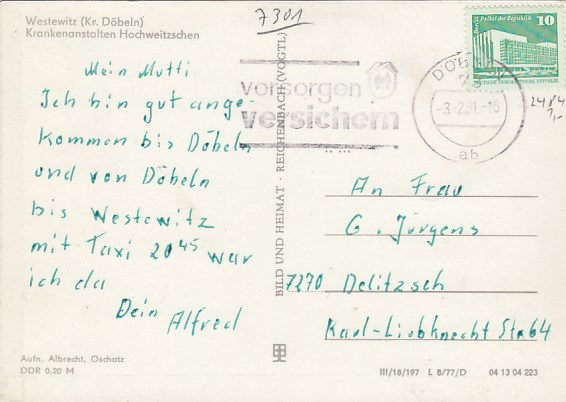 Westewitz (Kr. Döbeln)
Krankenanstalten Hochweitzschen
7301
Mein Mutti
Ich bin gut ange-
kommen bis Döbeln
und von Döbeln
bis Westewitz
mit Taxi 20 45 war
ich da
Dein
Alfred
Aufn. Albrecht, Oschatz
DDR 0,20 M
BILD UND HEIMAT · REICHENBACH (VOGTL)
vorsorgen
versichern
Berlin, Palast der Republik
10
DÖBELN
-3-2.81.-16
ab
2484
1,-
An Frau
G. Jürgens
7270 Delitzsch
Karl-Liebknecht Str. 64
III/18/197 L 8/77/D 04 13 04 223